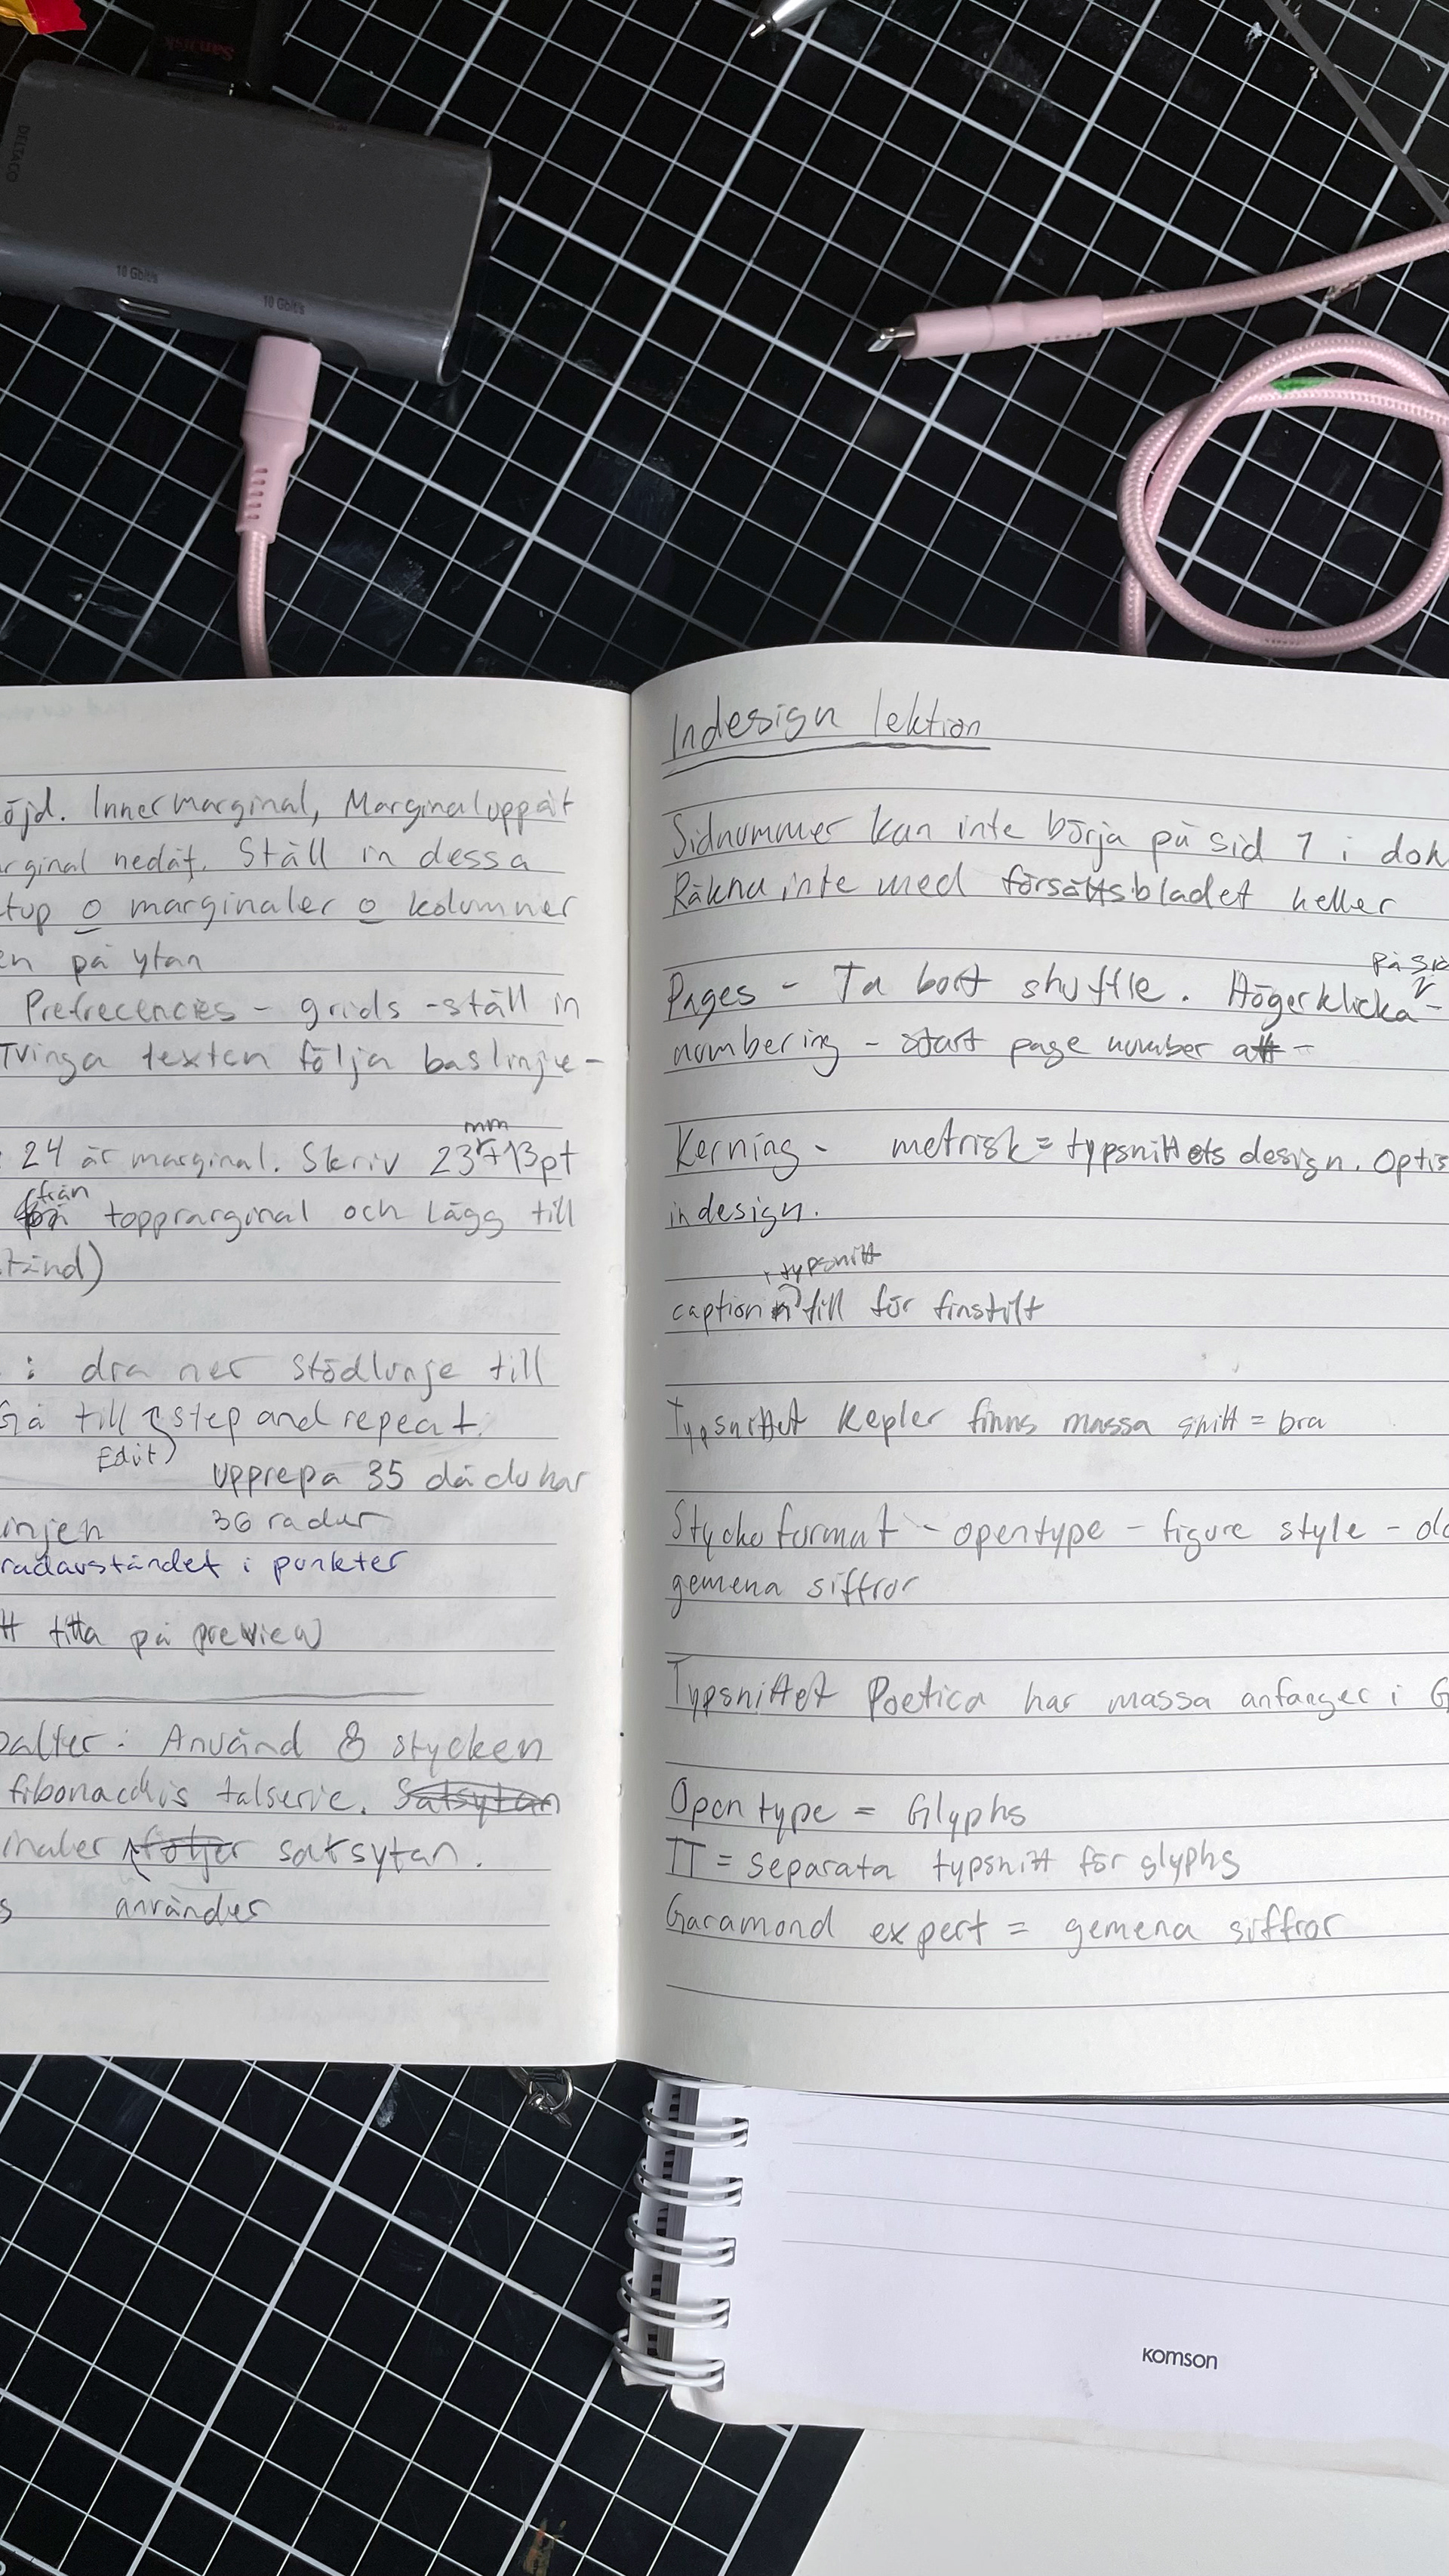 SanDisk
DELTACO
10 Gbit/s
10 Gbit/s
öjd. Innermarginal, Marginal uppåt
rginal nedåt. Ställ in dessa
tup o marginaler o kolumner
en på ytan
Prefrecencies - grids - ställ in
Tvinga texten följa baslinje-
mm
24 är marginal. Skriv 23+13pt
från
toppmarginal och lägg till
tånd)
: dra ner stödlinje till
Gå till step and repeat.
Edit)
upprepa 35 då du har
injen 36 rader
radavståndet i punkter
tt titta på preview
palter: Använd 8 stycken
fibonacchis talserie. Satsytan
inaler följer satsytan.
s använder
Indesign lektion
Sidnummer kan inte börja på sid 1 i dok
Räkna inte med försättsbladet heller
på sid
Pages - Ta bort shuffle. Högerklicka -
numbering - start page number att -
Kerning - metrisk = typsnittets design. Optis
indesign.
i typsnitt
caption till för finstilt
Typsnittet Kepler finns massa snitt = bra
Stycke format - opentype - figure style - old
gemena siffror
Typsnittet Poetica har massa anfanger i G
Open type = Glyphs
TT = separata typsnitt för glyphs
Garamond expert = gemena siffror
Komson